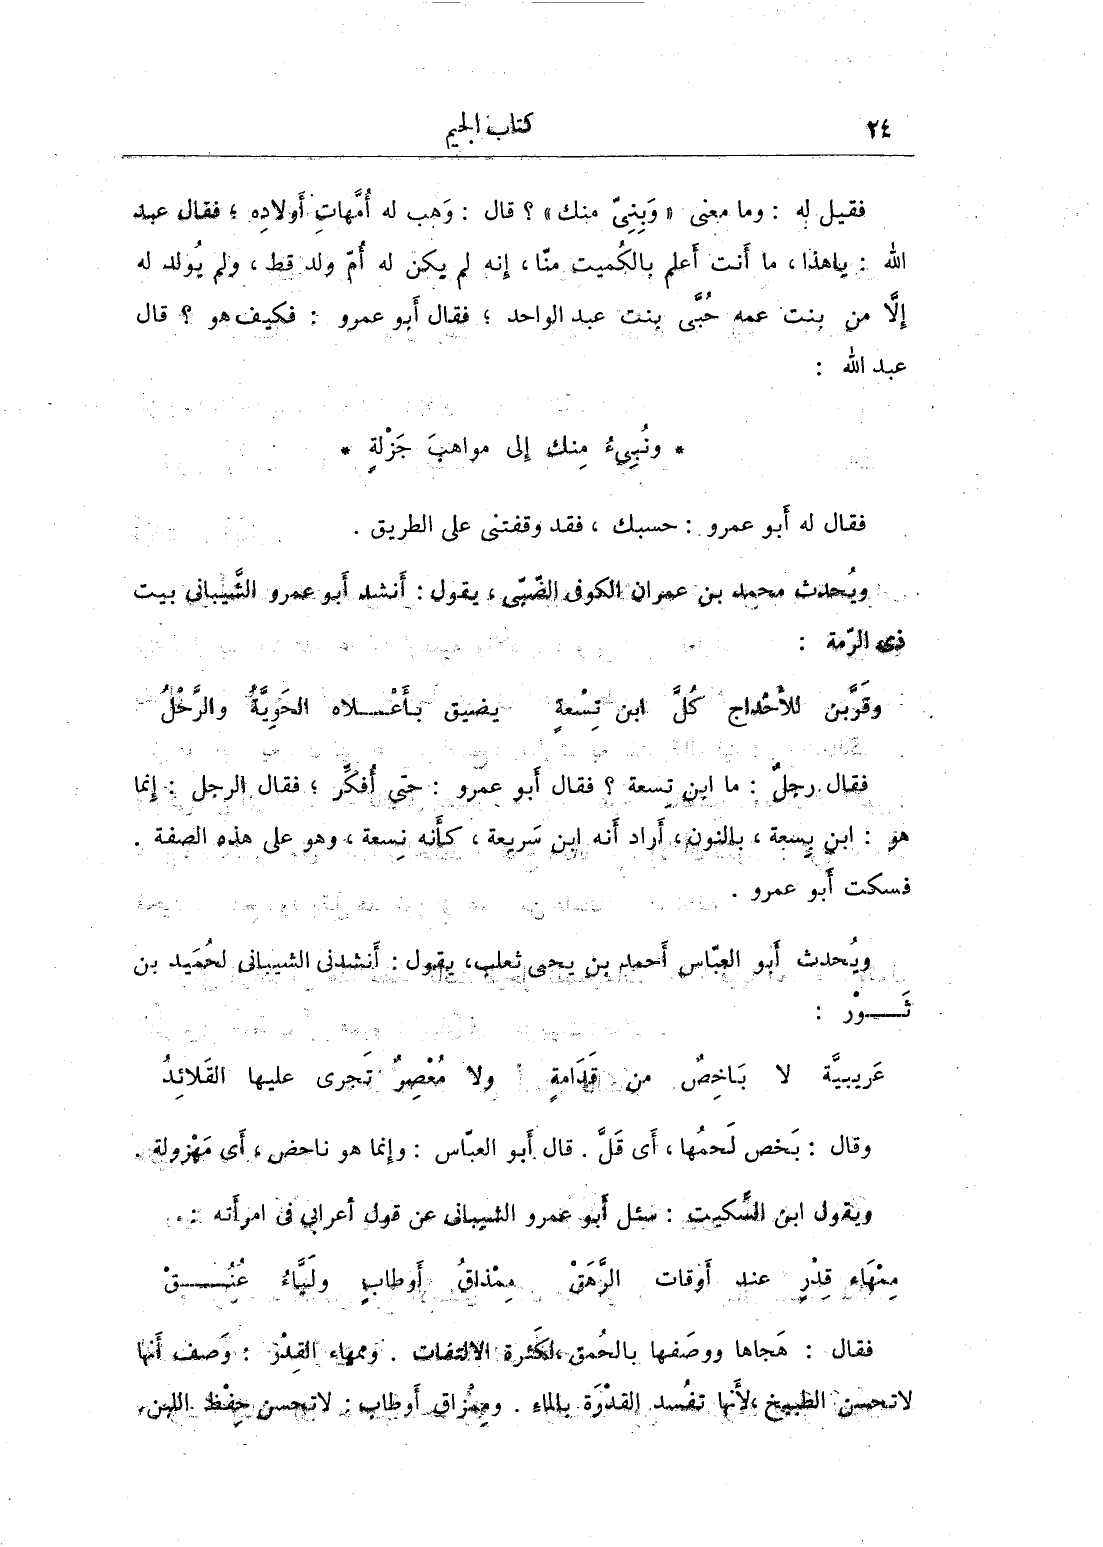 ٢٤
كتاب الجيم
فقيل له : وما معنى « وَبِنِىّ منك» ؟ قال : وَهب له أُمَّهاتِ أَولاده ؛ فقال عبد
الله : ياهذا ، ما أَنت أَعلم بالكُميت منّا ، إنه لم يكن له أُمّ ولد قط ، ولم يُولد له
إلَّا من بنت عمه حُبَّى بنت عبد الواحد ؛ فقال أَبو عمرو : فكيف هو ؟ قال
عبد الله :
* ونُبِىءُ مِنك إلى مواهبَ جَزْلةٍ *
فقال له أَبو عمرو : حسبك ، فقد وقفتنى على الطريق .
ويُحدث محمد بن عمران الكوفى الضّبّى ، يقول : أَنشد أَبو عمرو الشَّيبانى بيت
ذى الرّمة :
وقَرَّبن للأَحْداج كُلَّ ابن تِسْعةٍ يضيق بأَعْـــلاه الحَوِيَّةُ والرَّحْلُ
فقال رجلٌ : ما ابن تِسعة ؟ فقال أَبو عمرو : حتى أُفكِّر ؛ فقال الرجل : إنما
هو : ابن نِسعة ، بالنون ، أَراد أَنه ابن سَريعة ، كأَنه نِسعة ، وهو على هذه الصفة .
فسكت أَبو عمرو .
ويُحدث أَبو العبّاس أَحمد بن يحيى ثعلب ، يقول : أَنشدنى الشيبانى لحُمَيد بن
ثَـــوْر :
عَريبيَّة لا بَاخِصٌ من قَدَامةٍ ولا مُعْصِرٌ تَجرى عليها القَلائِدُ
وقال : بَخص لَحمُها ، أَى قَلَّ . قال أَبو العبّاس : وإنما هو ناحض ، أَى مَهْزولة .
ويقول ابن السِّكيت : سئل أَبو عمرو الشيبانى عن قول أعرابي فى امرأَته :
مِمْهَاء قِدْرٍ عند أَوقات الرَّهَقْ مِمْذاقُ أَوطابٍ ولَيَّاءُ عُنُـــقْ
فقال : هَجاها ووصَفها بالحُمق ، لكَثرة الالتفات . وممهاء القِدْر : وَصف أَنها
لاتحسن الطبيخ ، لأَنها تفُسد القدْرَة بالماء . وممْزاق أَوطاب : لاتحسن حِفْظ اللبن،